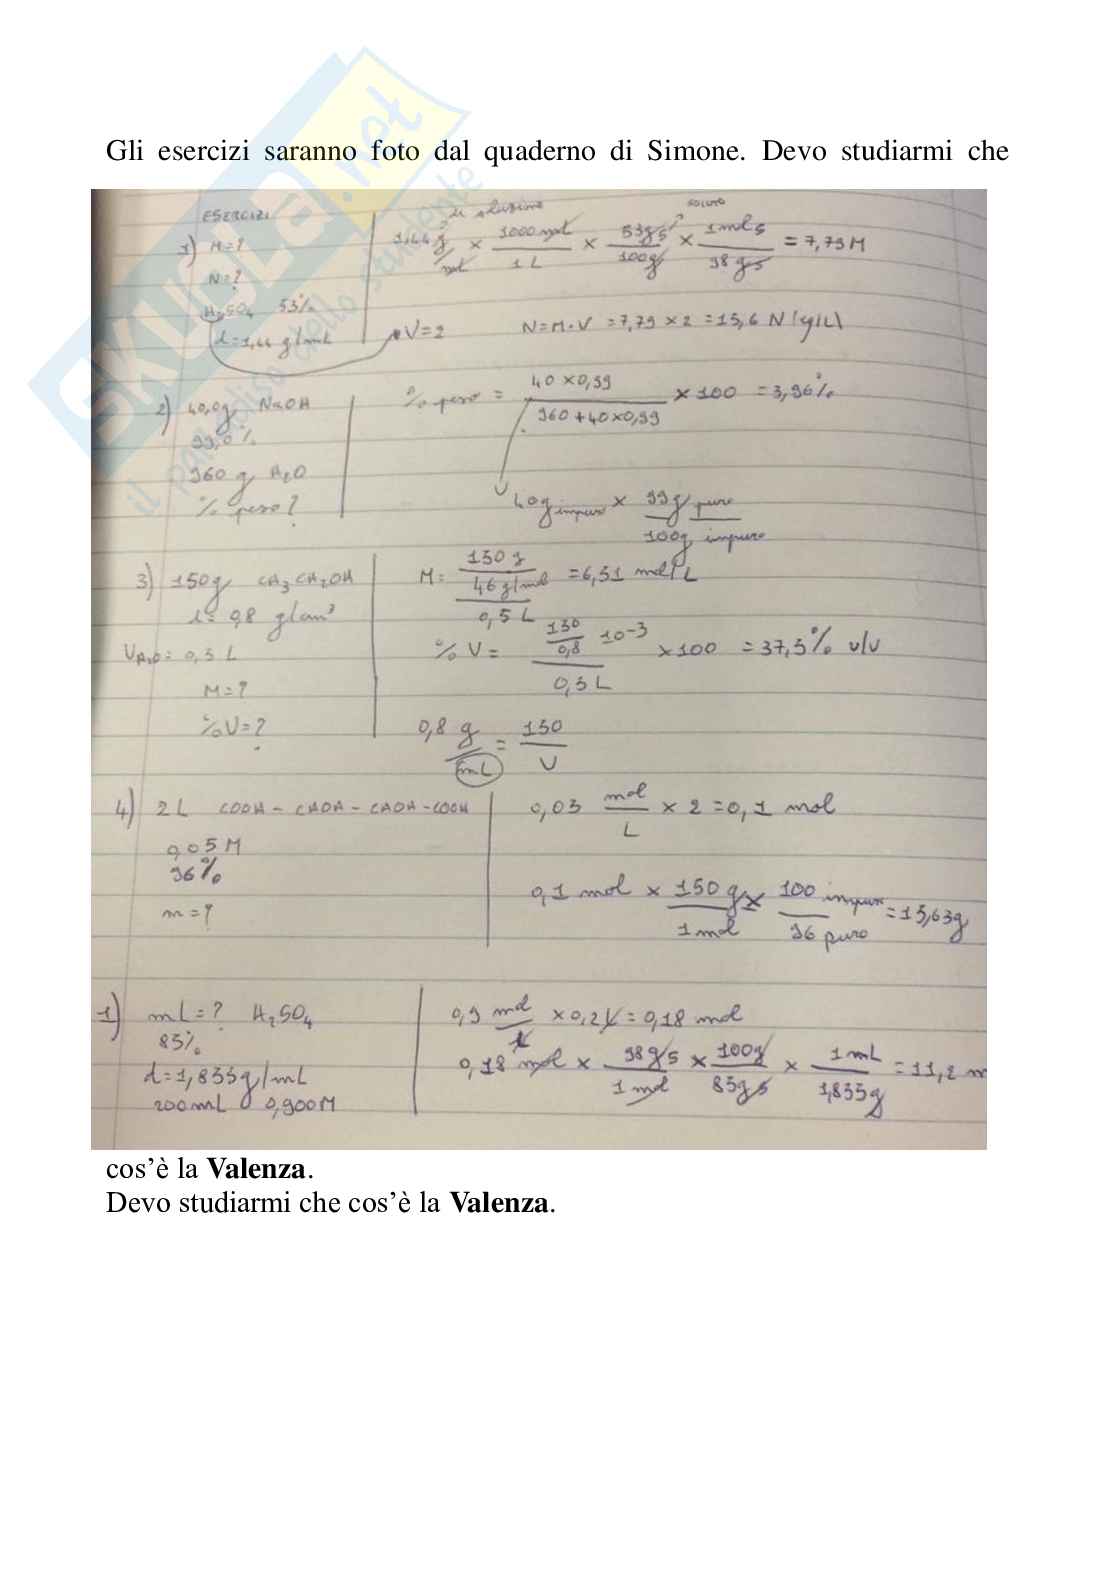 Gli esercizi saranno foto dal quaderno di Simone. Devo studiarmi che
ESERCIZI
1) M=?
N=?
H₂SO₄ 53%
d=1,44 g/mL
di soluzione soluto
1,44 g/mL × 1000 mL/1 L × 53g s/100g × 1 mol s/98 g s = 7,79 M
V=2 N=M·V =7,79 × 2 =15,6 N (g/L)
2) 40,0g NaOH
99,0%
960 g H₂O
% peso?
% peso = 40 × 0,99/960+40×0,99 × 100 = 3,96%
40g impuro × 99g puro/100g impuro
3) 150g CH₃CH₂OH
d= 0,8 g/cm³
V H₂O = 0,5 L
M=?
% V=?
M: 150 g/46 g/mol/0,5 L =6,51 mol/L
% V = 150/0,8 10⁻³/0,5 L ×100 =37,5% v/v
0,8 g/mL = 150/V
4) 2L COOH - CHOH - CHOH - COOH
0,05 M
96%
m=?
0,05 mol/L × 2 =0,1 mol
0,1 mol × 150 g/1 mol × 100 impuro/96 puro =15,63g
1) mL=? H₂SO₄
85%
d=1,835g/mL
200mL 0,900M
0,9 mol/L ×0,2L=0,18 mol
0,18 mol × 98g s/1 mol × 100g/85g s × 1 mL/1,835g =11,2 m
cos'è la Valenza.
Devo studiarmi che cos'è la Valenza.
SKUOLA.net
il paradiso dello studente